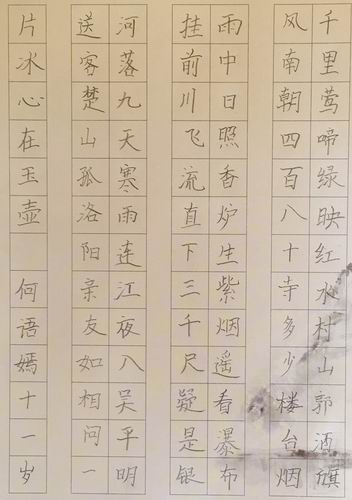 千里莺啼绿映红水村山郭酒旗
风南朝四百八十寺多少楼台烟
雨中日照香炉生紫烟遥看瀑布
挂前川飞流直下三千尺疑是银
河落九天寒雨连江夜八吴平明
送客楚山孤洛阳亲友如相问一
片冰心在玉壶 何语嫣十一岁